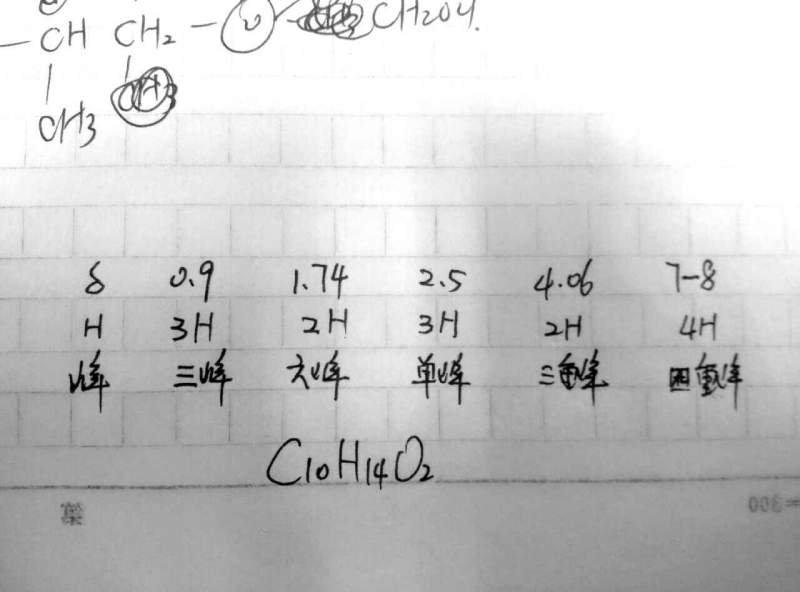 CH CH2 - O - CH2OH.
CH3 CH3
δ 0.9 1.74 2.5 4.06 7-8
H 3H 2H 3H 2H 4H
峰 三峰 六峰 单峰 三重峰 四重峰
C10H14O2